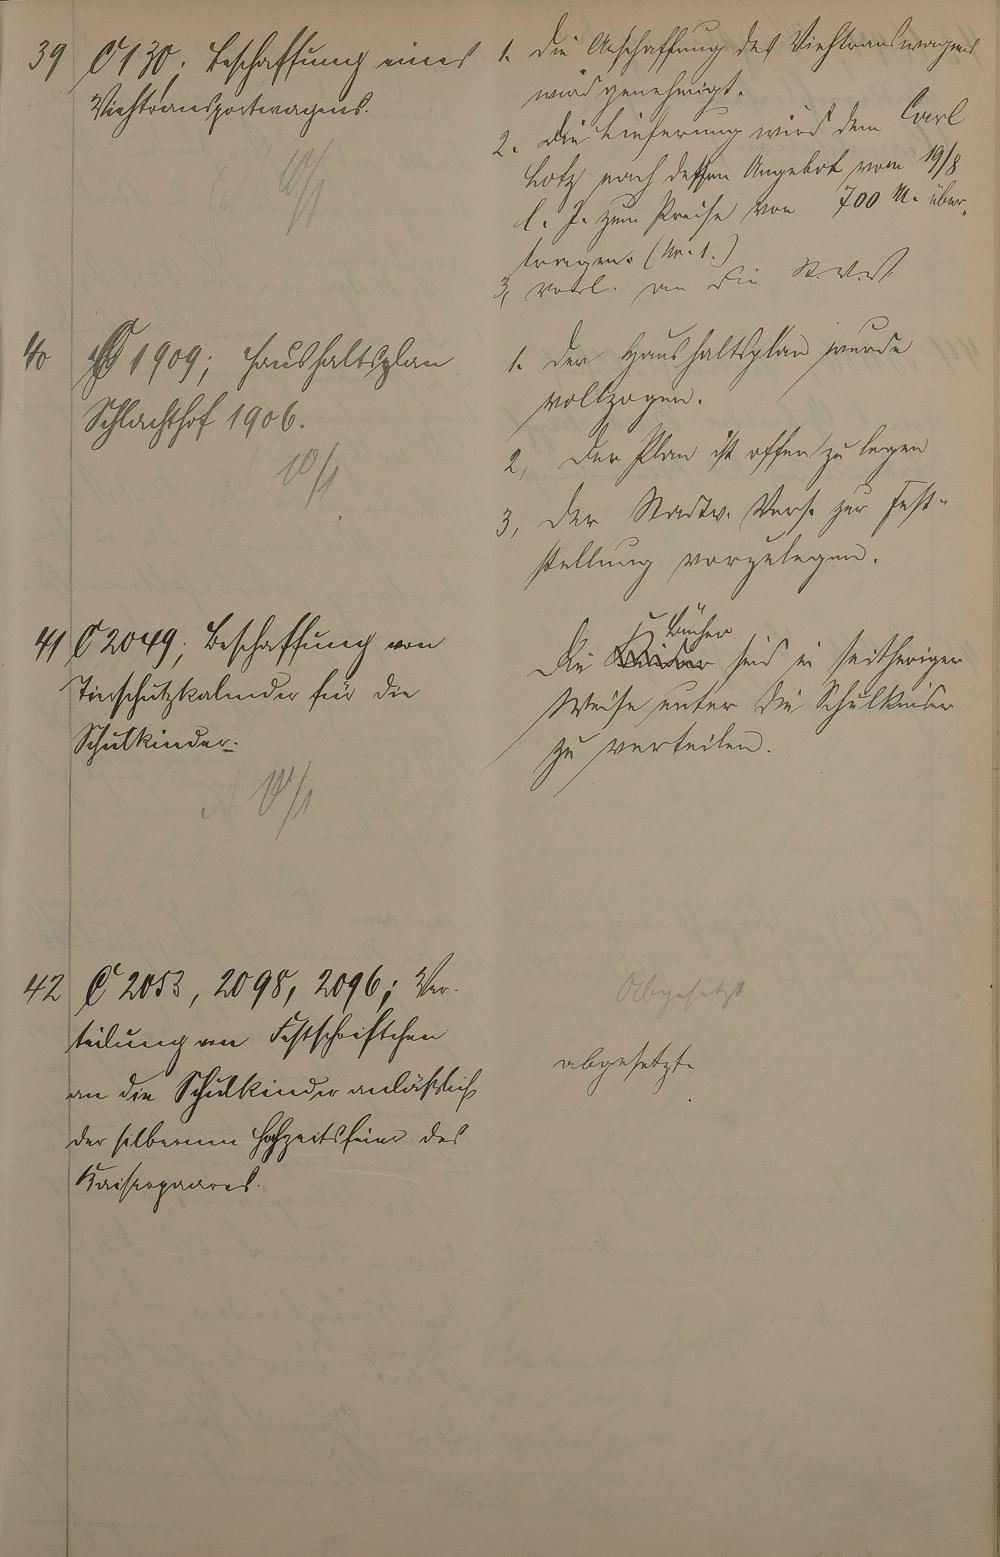 39 C 130; Beschaffung eines
Viehtransportwagens.
10/1
1. Die Anschaffung des Viehtranswagens
wird genehmigt.
2. Die Lieferung wird dem Carl
Lotz nach dessen Angebot vom 19/8
l. J. zum Preise von 700 M. über-
tragen. (Nr. 1.)
3, vorl. an die
40 C 1909; Haushaltsplan
Schlachthof 1906.
10/1
1. Der Haushaltsplan wurde
vollzogen.
2, Der Plan ist offen zu legen
3, Der Stadtv. Vers. zur Fest-
stellung vorzulegen.
41 C 2049; Beschaffung von
Tierschutzkalender für die
Schulkinder.
10/1
Bücher
Die sind in seitheriger
Weise unter die Schulkinder
zu verteilen.
42 C 2053, 2098, 2096; Ver-
teilung von Festschriftchen
an die Schulkinder anläßlich
der silbernen Hochzeitsfeier des
Kaiserpaares.
Abgesetzt
abgesetzt.